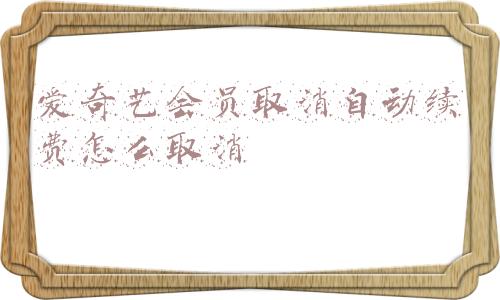 爱奇艺会员取消自动续
费怎么取消